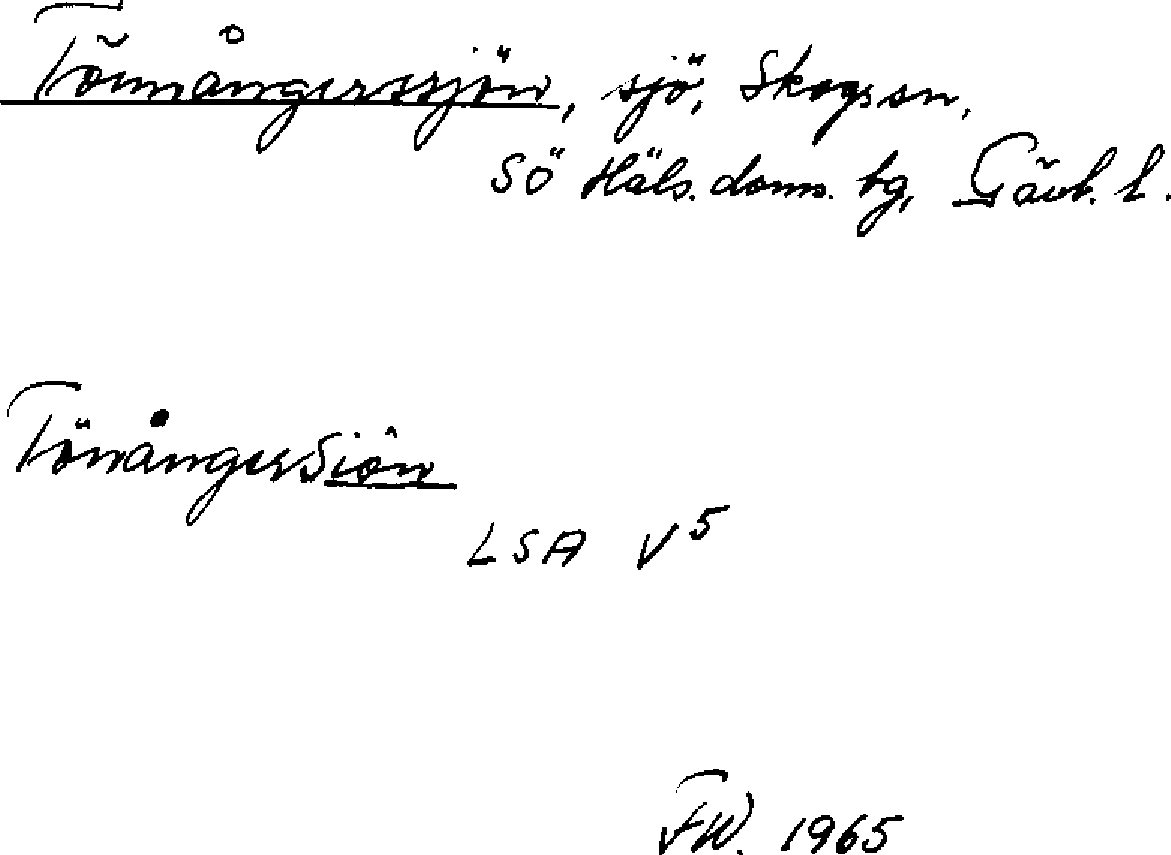 Tönnångerssjön, sjö, Skogs sn,
SÖ Häls. doms. tg, Gävl. l.
TönångerSiön
LSA V5
FW. 1965